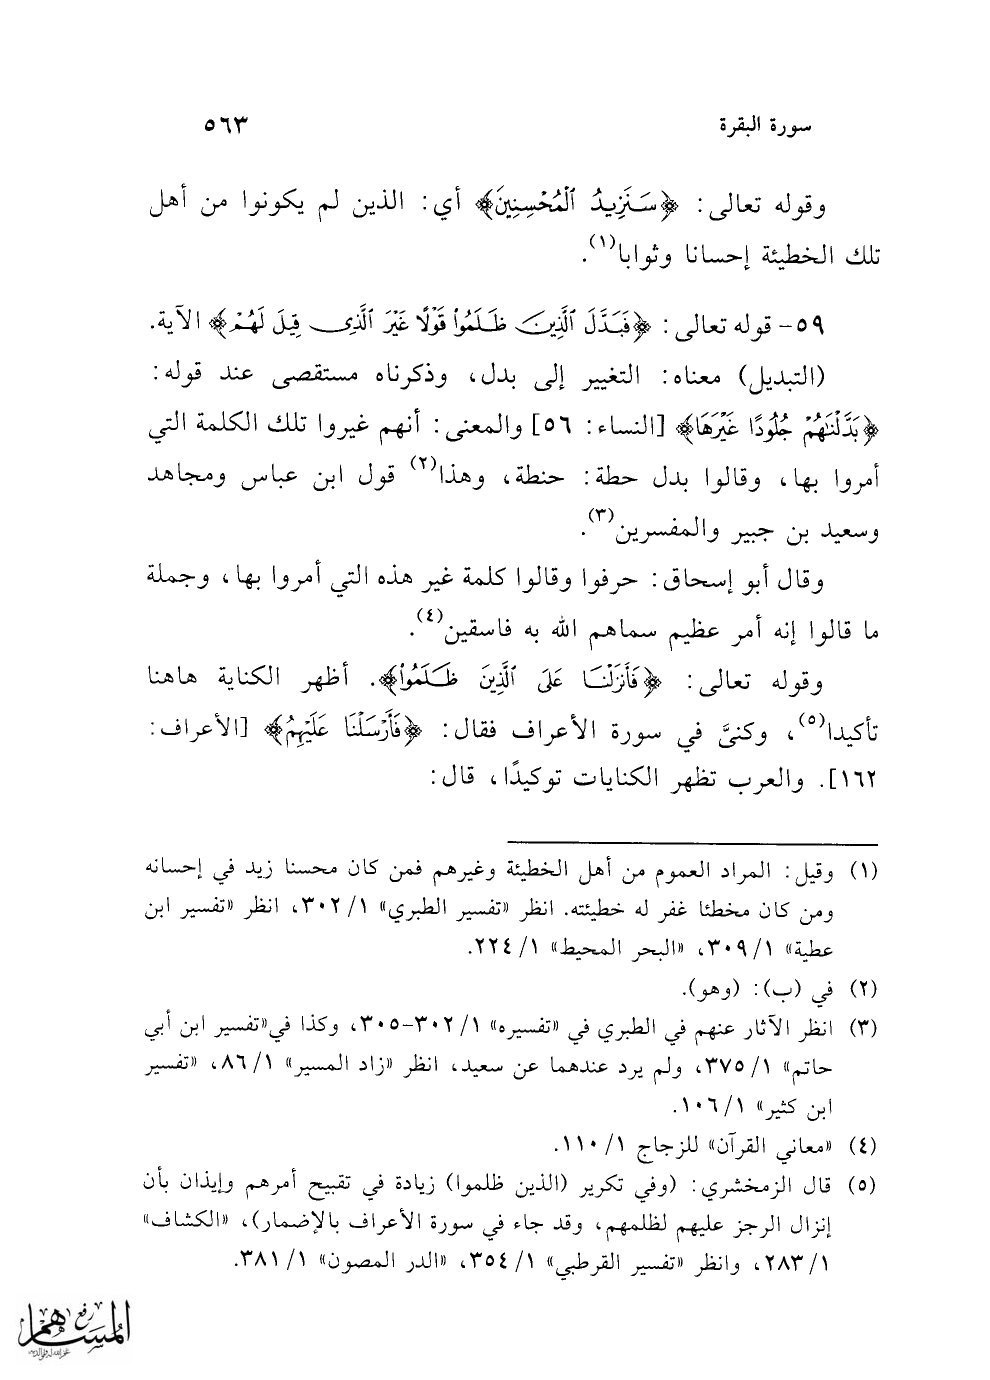 سورة البقرة ٥٦٣
وقوله تعالى: ﴿سَنَزِيدُ ٱلْمُحْسِنِينَ﴾ أي: الذين لم يكونوا من أهل
تلك الخطيئة إحسانا وثوابا(١).
٥٩- قوله تعالى: ﴿فَبَدَّلَ ٱلَّذِينَ ظَلَمُواْ قَوْلًا غَيْرَ ٱلَّذِى قِيلَ لَهُمْ﴾ الآية.
(التبديل) معناه: التغيير إلى بدل، وذكرناه مستقصى عند قوله:
﴿بَدَّلْنَٰهُمْ جُلُودًا غَيْرَهَا﴾ [النساء: ٥٦] والمعنى: أنهم غيروا تلك الكلمة التي
أمروا بها، وقالوا بدل حطة: حنطة، وهذا(٢) قول ابن عباس ومجاهد
وسعيد بن جبير والمفسرين(٣).
وقال أبو إسحاق: حرفوا وقالوا كلمة غير هذه التي أمروا بها، وجملة
ما قالوا إنه أمر عظيم سماهم الله به فاسقين(٤).
وقوله تعالى: ﴿فَأَنزَلْنَا عَلَى ٱلَّذِينَ ظَلَمُواْ﴾. أظهر الكناية هاهنا
تأكيدا(٥)، وكنىَّ في سورة الأعراف فقال: ﴿فَأَرْسَلْنَا عَلَيْهِمْ﴾ [الأعراف:
١٦٢]. والعرب تظهر الكنايات توكيدًا، قال:
(١) وقيل: المراد العموم من أهل الخطيئة وغيرهم فمن كان محسنا زيد في إحسانه
ومن كان مخطئا غفر له خطيئته. انظر «تفسير الطبري» ١/ ٣٠٢، انظر «تفسير ابن
عطية» ١/ ٣٠٩، «البحر المحيط» ١/ ٢٢٤.
(٢) في (ب): (وهو).
(٣) انظر الآثار عنهم في الطبري في «تفسيره» ١/ ٣٠٢-٣٠٥، وكذا في«تفسير ابن أبي
حاتم» ١/ ٣٧٥، ولم يرد عندهما عن سعيد، انظر «زاد المسير» ١/ ٨٦، «تفسير
ابن كثير» ١/ ١٠٦.
(٤) «معاني القرآن» للزجاج ١/ ١١٠.
(٥) قال الزمخشري: (وفي تكرير (الذين ظلموا) زيادة في تقبيح أمرهم وإيذان بأن
إنزال الرجز عليهم لظلمهم، وقد جاء في سورة الأعراف بالإضمار)، «الكشاف»
١/ ٢٨٣، وانظر «تفسير القرطبي» ١/ ٣٥٤، «الدر المصون» ١/ ٣٨١.
رفع
المساهم